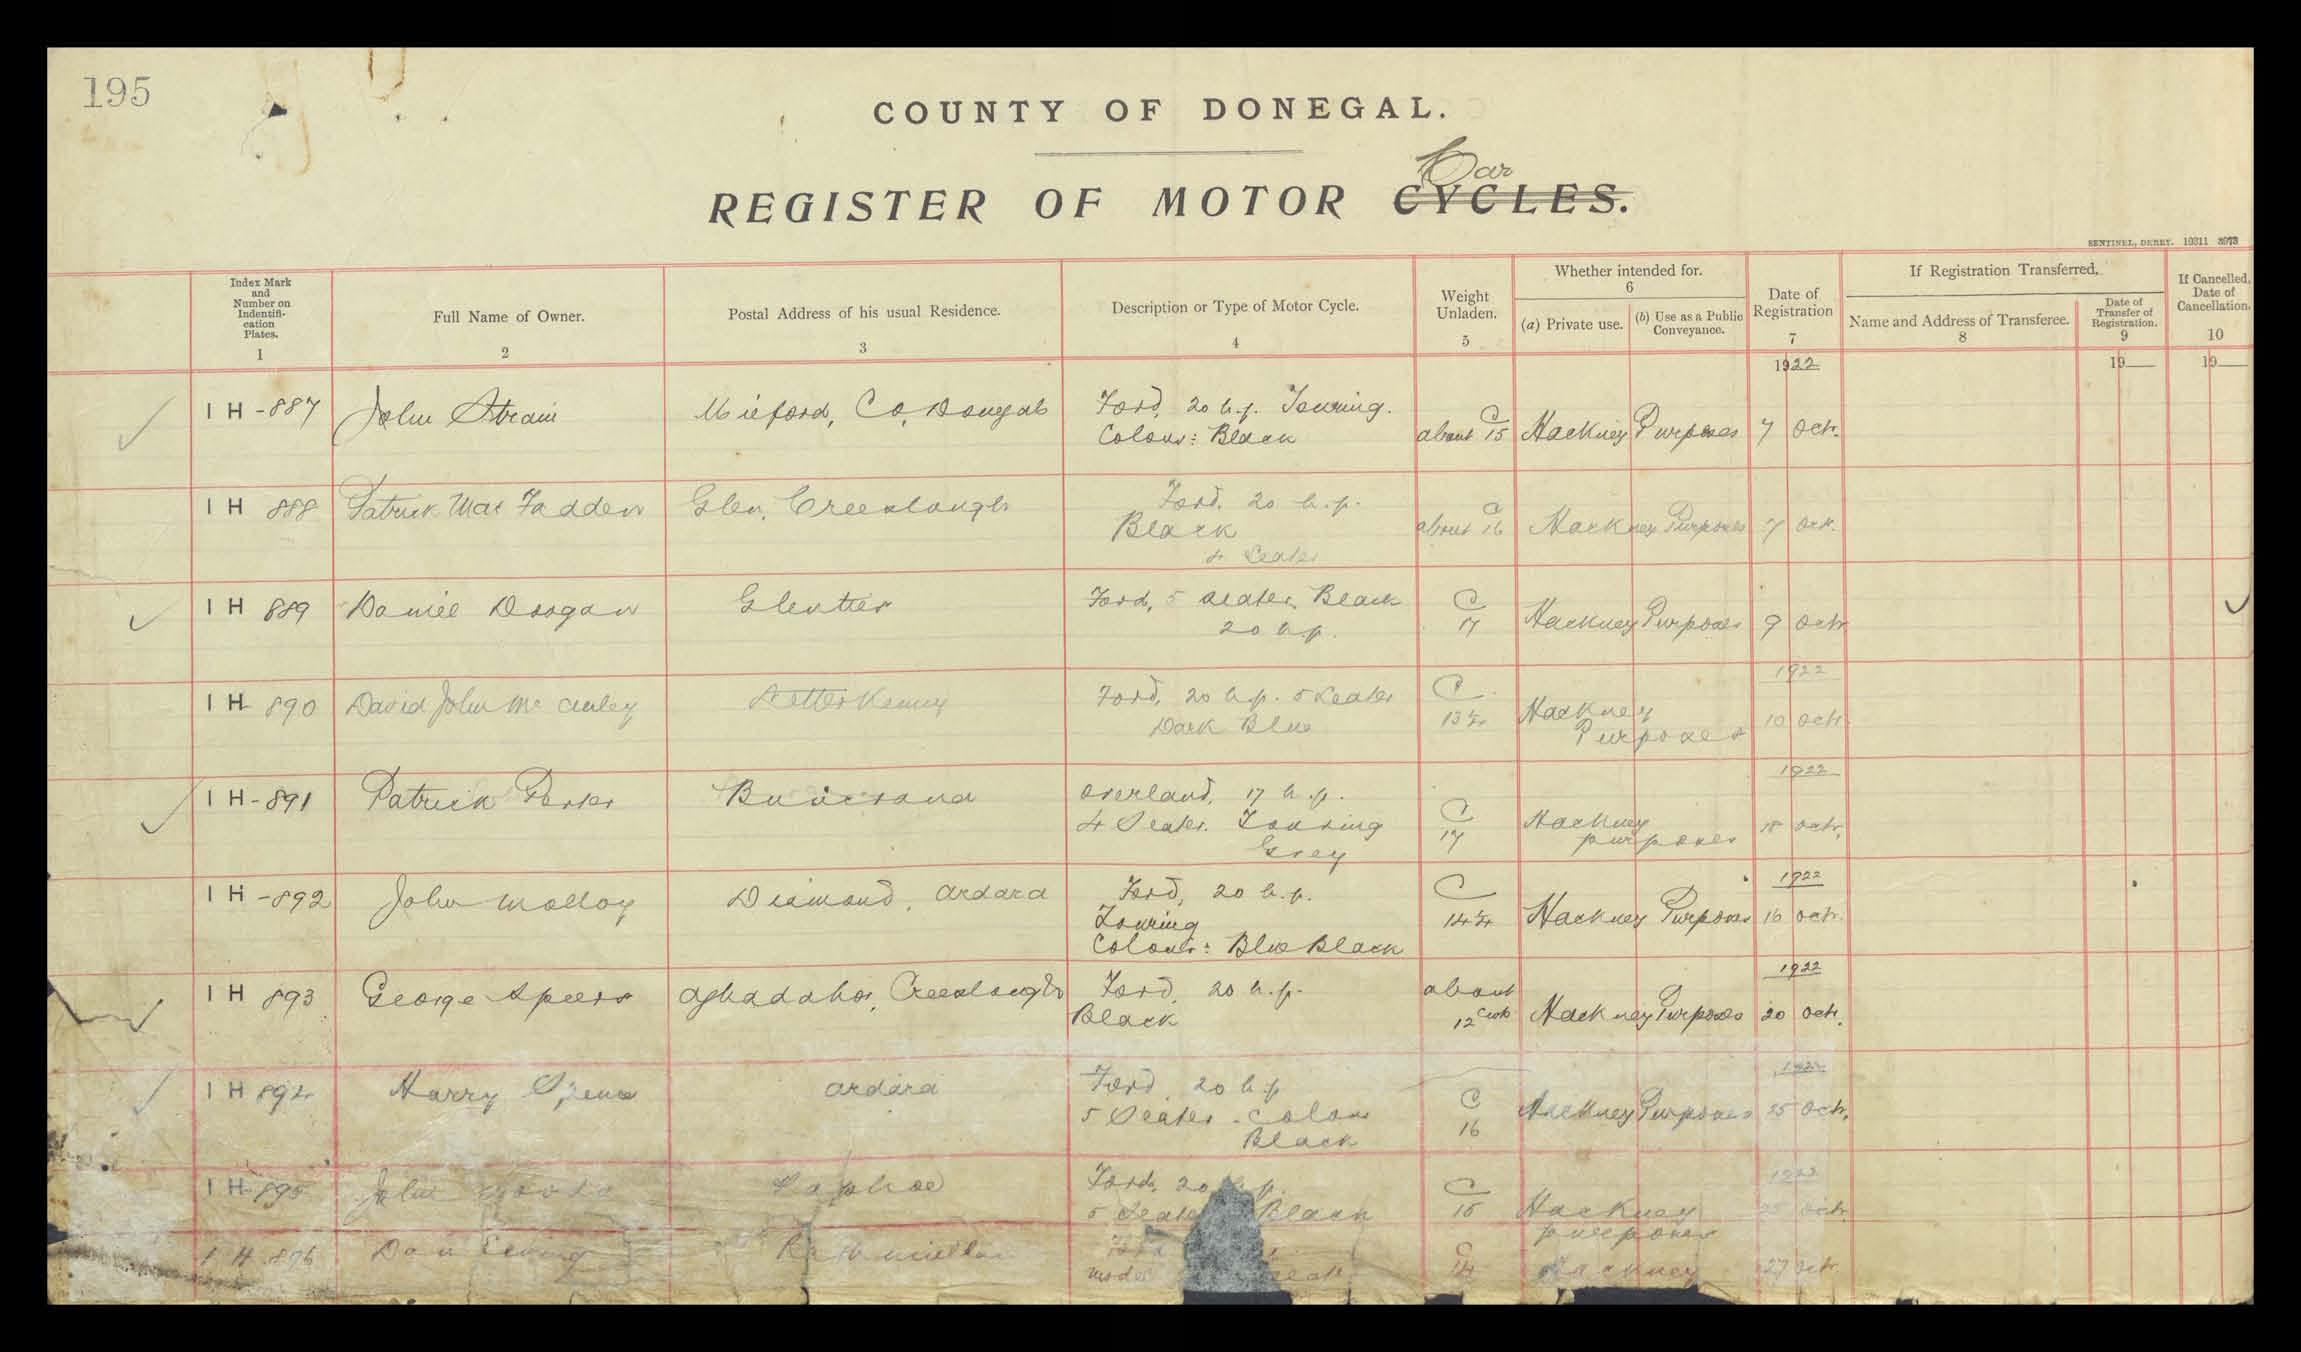 195
COUNTY OF DONEGAL.
Car
REGISTER OF MOTOR CYCLES.
SENTINEL, DERRY. 10311 3973
Index Mark and Number on Indentifi-cation Plates. 1
Full Name of Owner. 2
Postal Address of his usual Residence. 3
Description or Type of Motor Cycle. 4
Weight Unladen. 5
Whether intended for. 6
(a) Private use.
(b) Use as a Public Conveyance.
Date of Registration 7
If Registration Transferred,
Name and Address of Transferee. 8
Date of Transfer of Registration. 9
If Cancelled, Date of Cancellation. 10
1922 19 19
I H - 887 John Strain Milford, Co, Donegal Ford, 20 h.p. Touring. about C 15 Hackney Purposes 7 Octr.
Colour: Black
I H 888 Patrick Mac Fadden Glen, Creeslough Ford. 20 h.p. about C 16 Hackney Purposes 7 Oct.
Black
4 Seater
I H 889 Daniel Doogan Glenties Ford, 5 seater, Black C 17 Hackney Purposes 9 Octr
20 h.p.
1922
I H 890 David John Mc Auley Letterkenny Ford, 20 h.p. 5 Seater C 13¾ Hackney Purposes 10 Octr
Dark Blue
1922
I H - 891 Patrick Porter Buncrana Overland, 17 h.p. C 17 Hackney purposes 18 Octr.
4 Seater. Touring
Grey
1922
I H - 892 John Molloy Diamond, Ardara Ford, 20 h.p. C 14¾ Hackney Purposes 16 Octr.
Touring
Colour: Blue Black
1922
I H 893 George Speers Creeslough Ford, 20 h.p. about 12 Cwts Hackney Purposes 20 Octr.
Black
1922
I H 894 Harry Ardara Ford, 20 h.p C 16 Hackney Purposes 25 Octr.
5 Seater - Colour
Black
1922
I H 895 John Raphoe Ford, 20 h.p. C 15 Hackney purposes 25 Octr.
5 Seater Black
I H 896 Rathmullan Ford C 14 Hackney 27 Octr